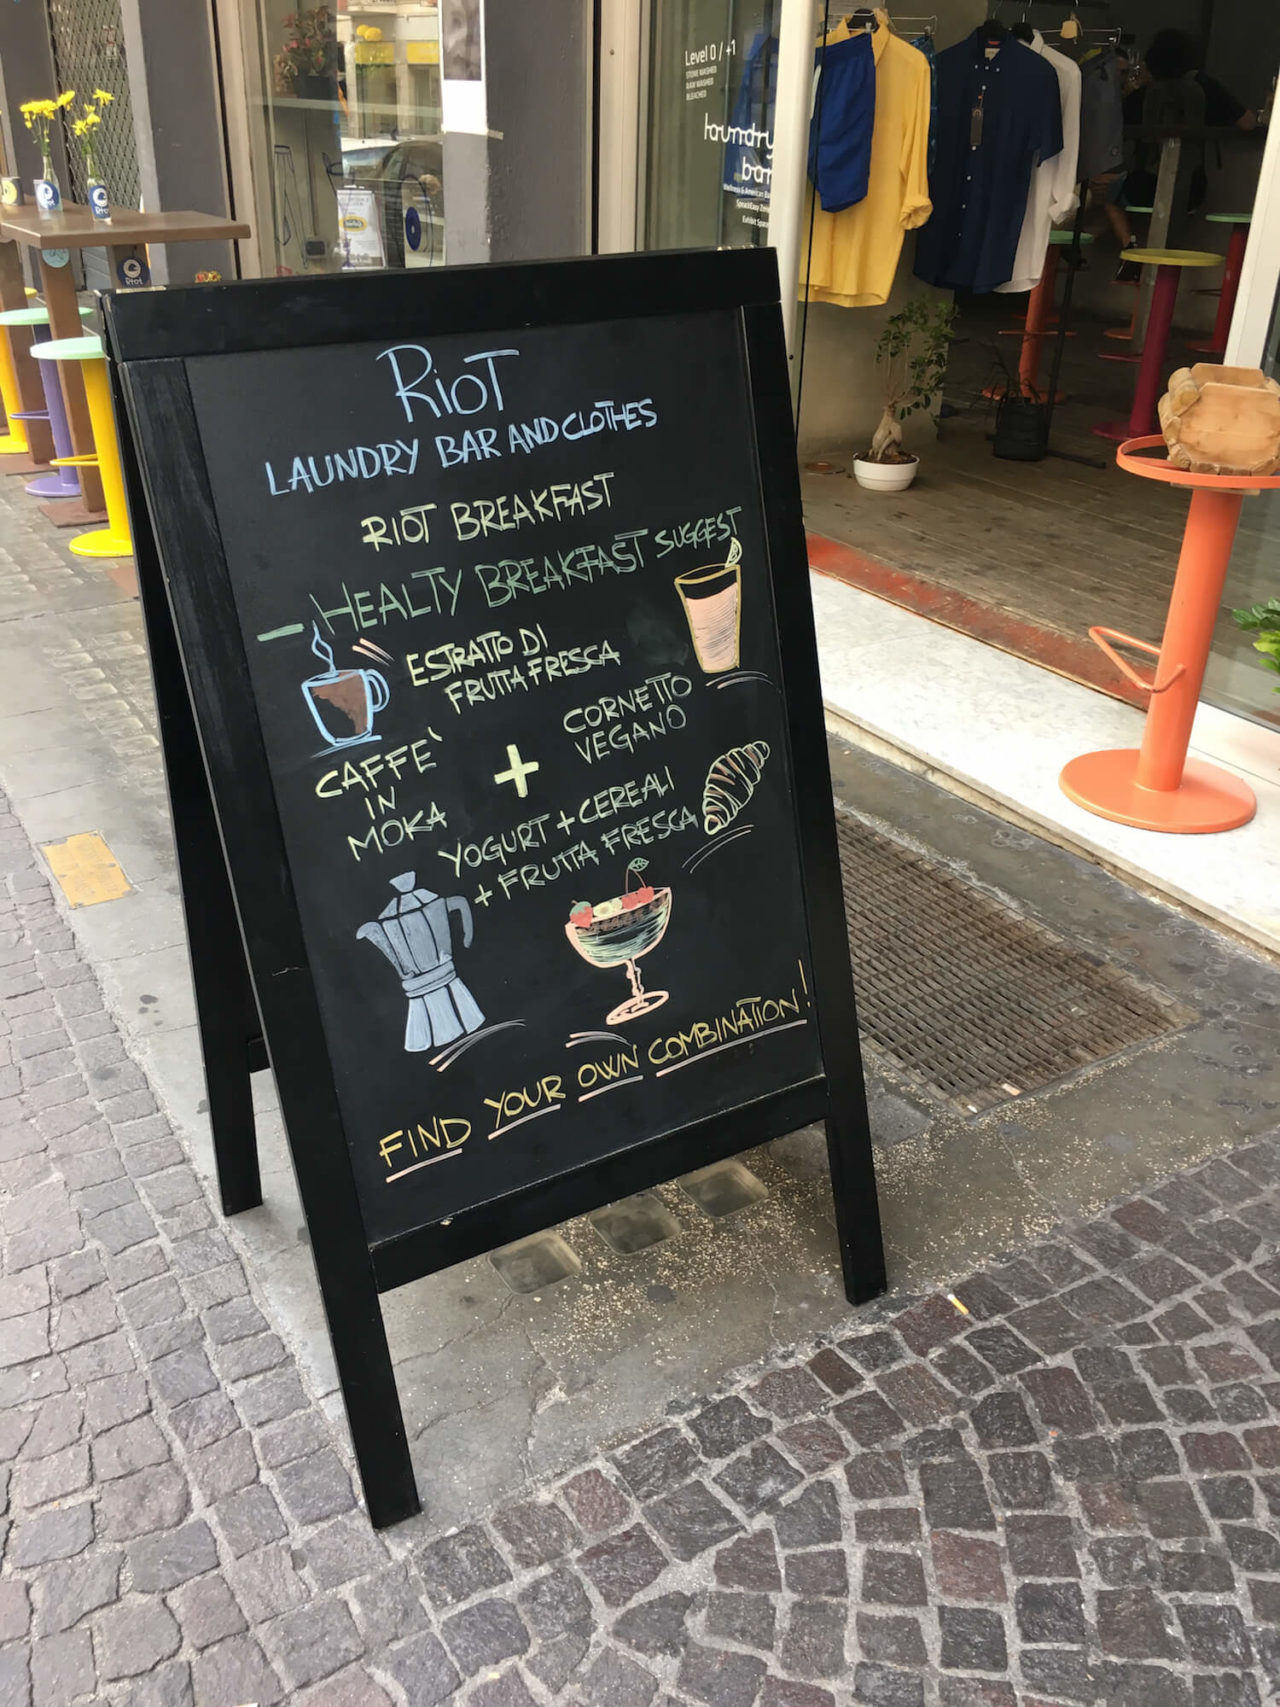 RIOT
LAUNDRY BAR AND CLOTHES
RIOT BREAKFAST
- HEALTY BREAKFAST SUGGEST
ESTRATTO DI
FRUTTA FRESCA
CAFFE'
IN
MOKA
+
CORNETTO
VEGANO
YOGURT + CEREALI
+ FRUTTA FRESCA
FIND YOUR OWN COMBINATION!
Level 0 / +1
STONE WASHED
RAW WASHED
BLEACHED
laundry
bar
Wellness & American Ba
Exhibit Spac
Riot
Riot